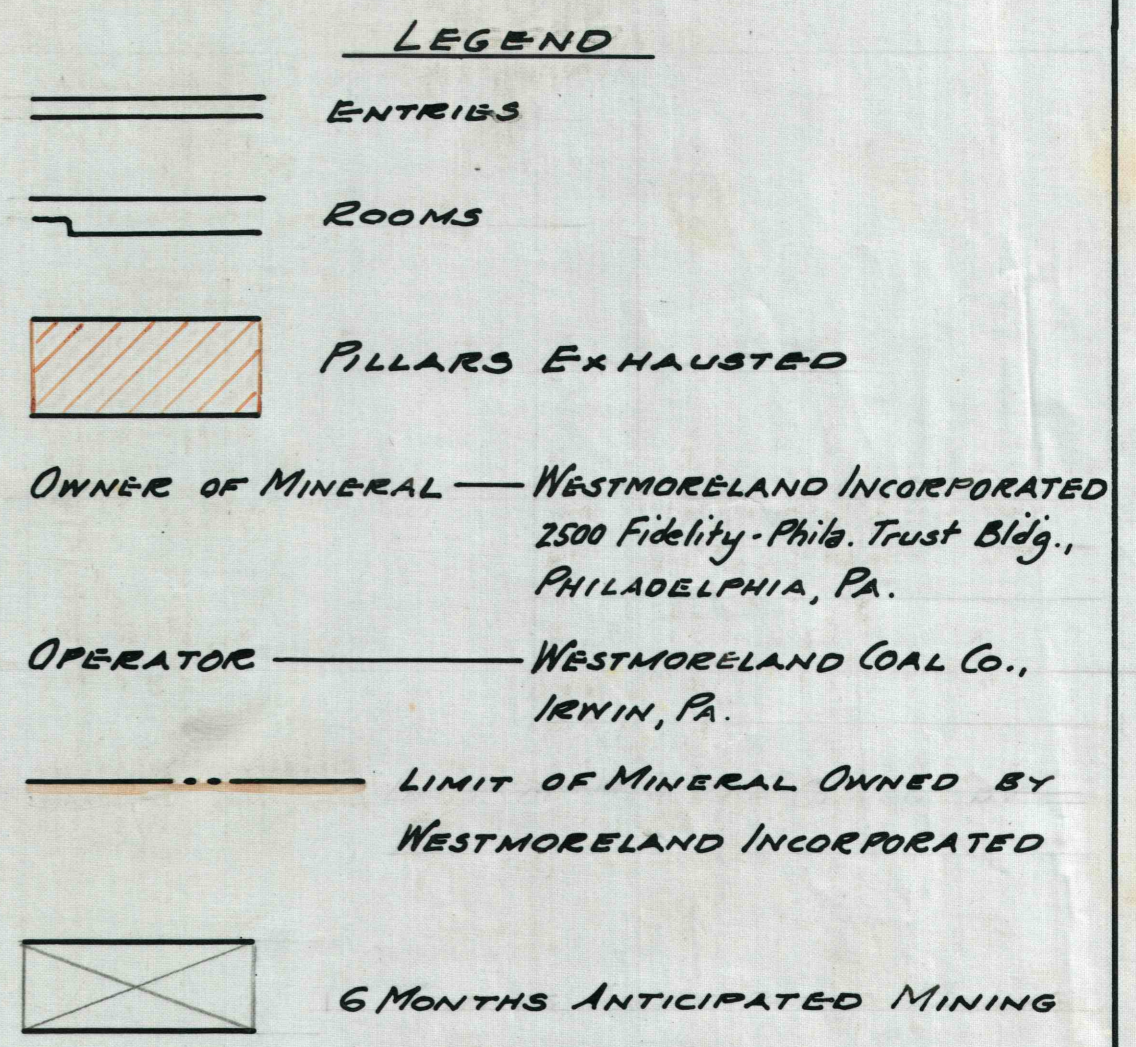 LEGEND
ENTRIES
ROOMS
PILLARS EXHAUSTED
OWNER OF MINERAL — WESTMORELAND INCORPORATED
2500 Fidelity-Phila. Trust Bldg.,
PHILADELPHIA, PA.
OPERATOR — WESTMORELAND COAL CO.,
IRWIN, PA.
LIMIT OF MINERAL OWNED BY
WESTMORELAND INCORPORATED
6 MONTHS ANTICIPATED MINING